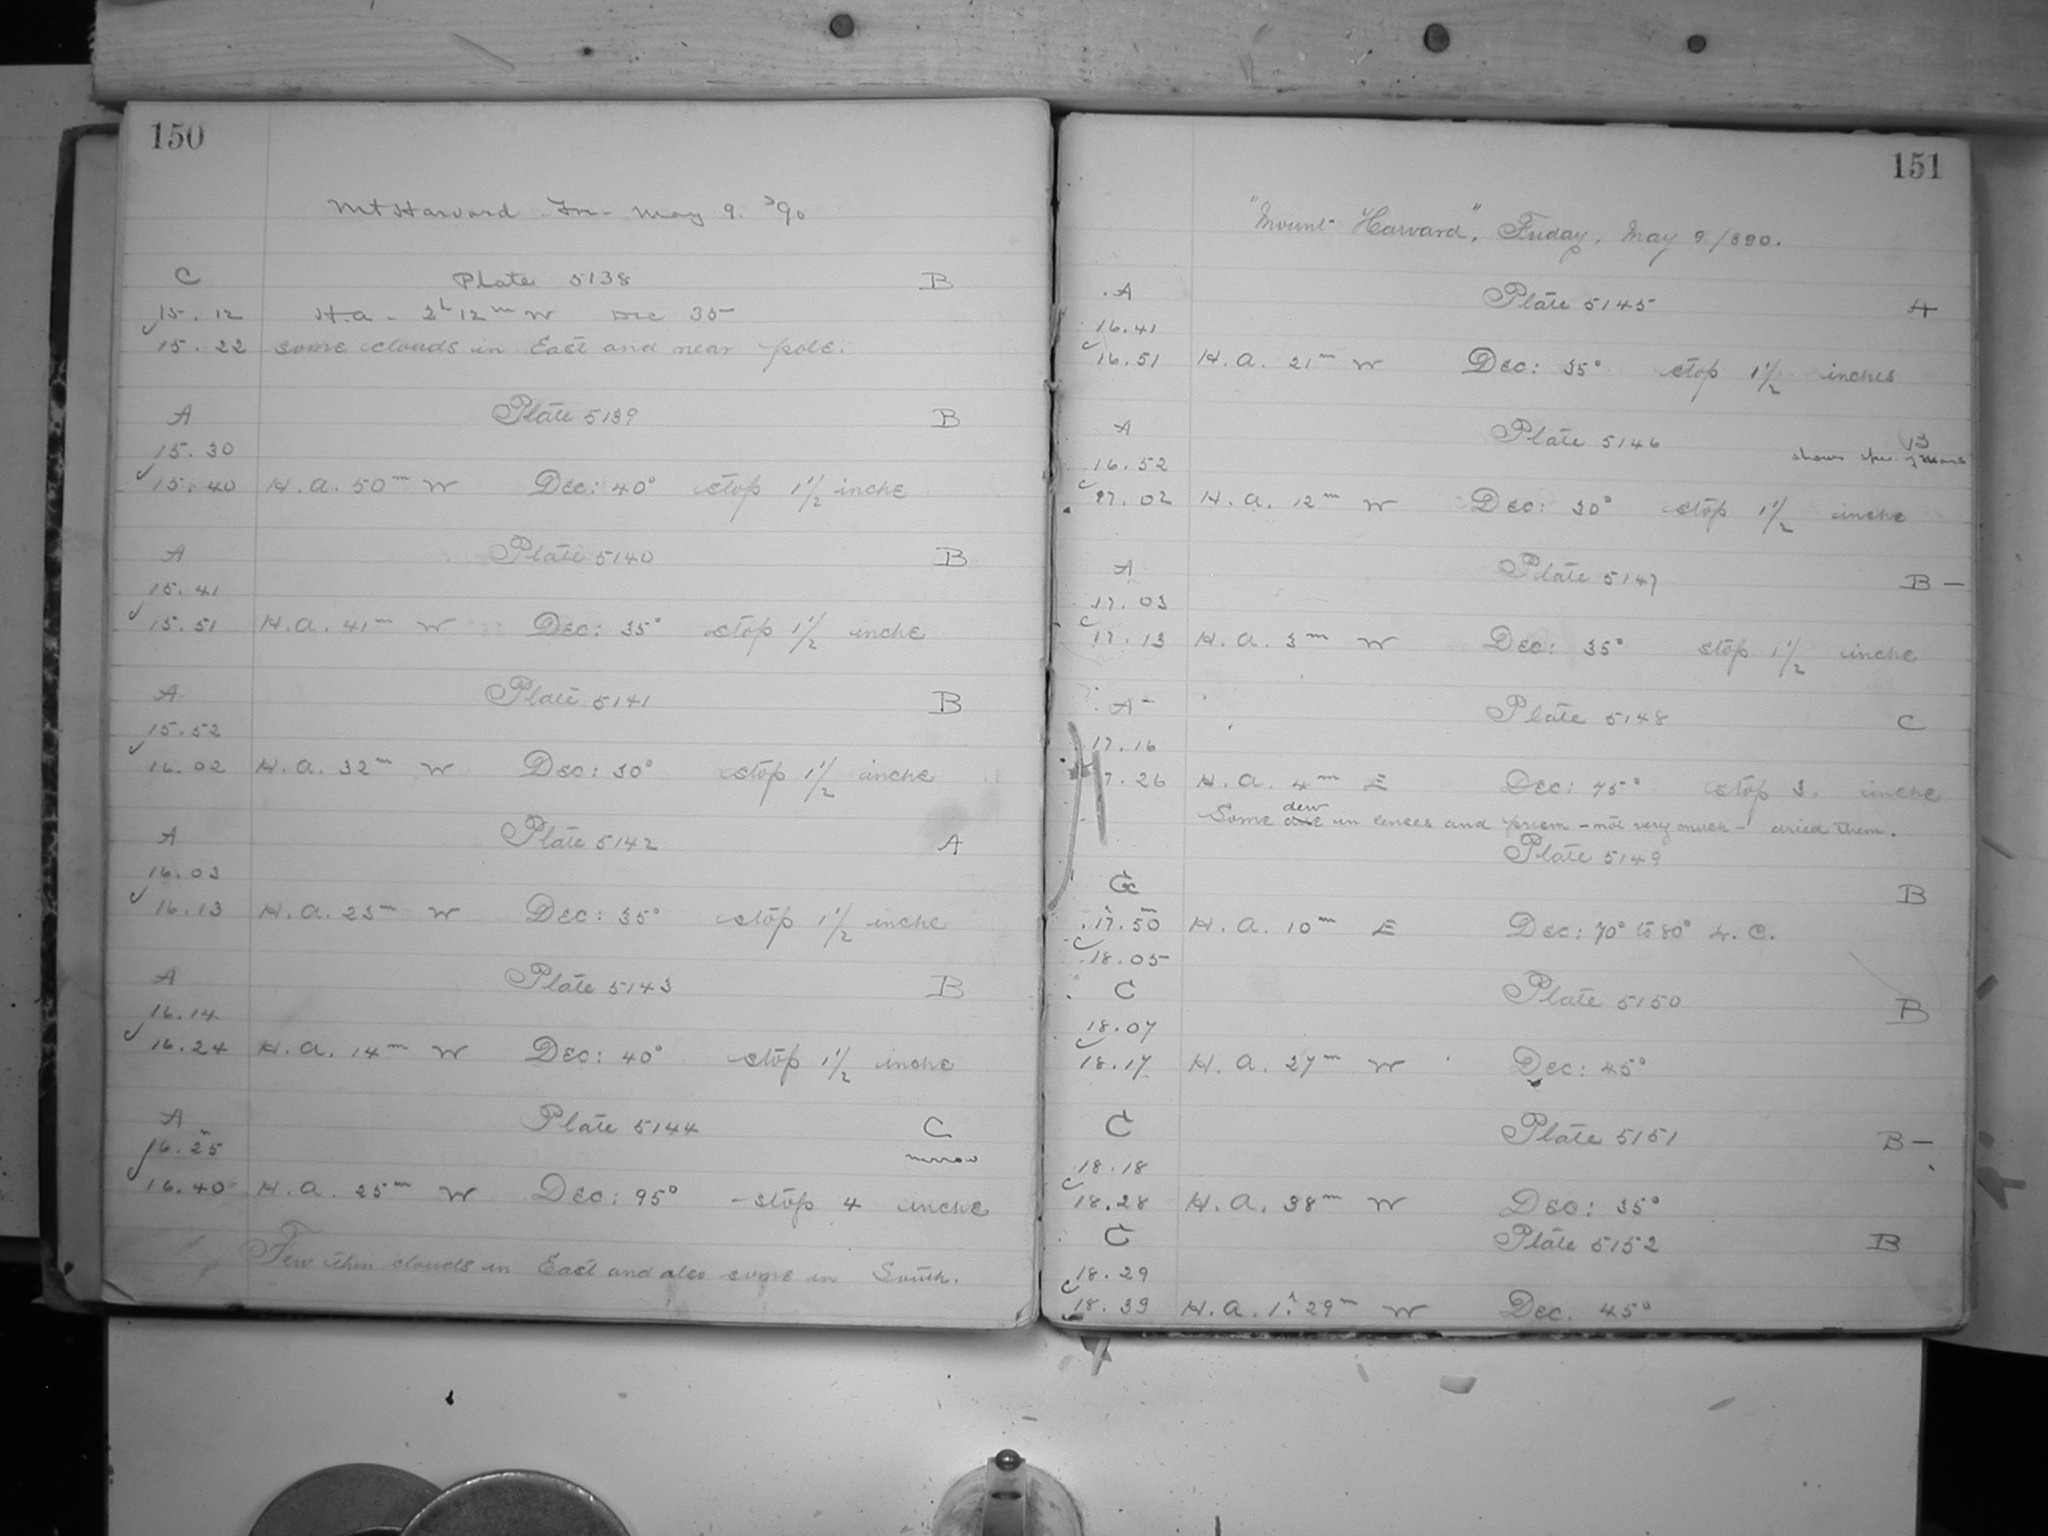 150
Mt Harvard Fri- May 9. '90
C Plate 5138 B
15.12 H.a - 2h 12m W Dec 35
15.22 some clouds in East and near pole.
A Plate 5139 B
15.30
15.40 H.a. 50m W Dec: 40° stop 1 1/2 inche
A Plate 5140 B
15.41
15.51 H.a. 41m W Dec: 35° stop 1 1/2 inche
A Plate 5141 B
15.52
16.02 H.a. 32m W Dec: 30° stop 1 1/2 inche
A Plate 5142 A
16.03
16.13 H.a. 23m W Dec: 35° stop 1 1/2 inche
A Plate 5143 B
16.14
16.24 H.a. 14m W Dec: 40° stop 1 1/2 inche
A Plate 5144 C
16.25 narrow
16.40 H.a. 25m W Dec: 95° stop 4 inche
Few thin clouds in East and also some in South.
151
"Mount Harvard", Friday, May 9/890.
A Plate 5145 A
16.41
16.51 H.a. 21m W Dec: 35° stop 1 1/2 inches
A Plate 5146 B
16.52 shows
17.02 H.a. 12m W Dec: 30° stop 1 1/2 inche
A Plate 5147 B -
17.03
17.13 H.a. 3m W Dec: 35° stop 1 1/2 inche
A - Plate 5148 C
17.16
17.26 H.a. 4m E Dec: 75° stop 3. inche
Some dew in lences and prism - not very much - dried them.
Plate 5149
C B
17.50 H.a. 10m E Dec: 70° to 80° L.C.
18.05
C Plate 5150 B
18.07
18.17 H.a. 27m W Dec: 45°
C Plate 5151 B -
18.18
18.28 H.a. 38m W Dec: 35°
C Plate 5152 B
18.29
18.39 H.a. 1h 29m W Dec. 45°